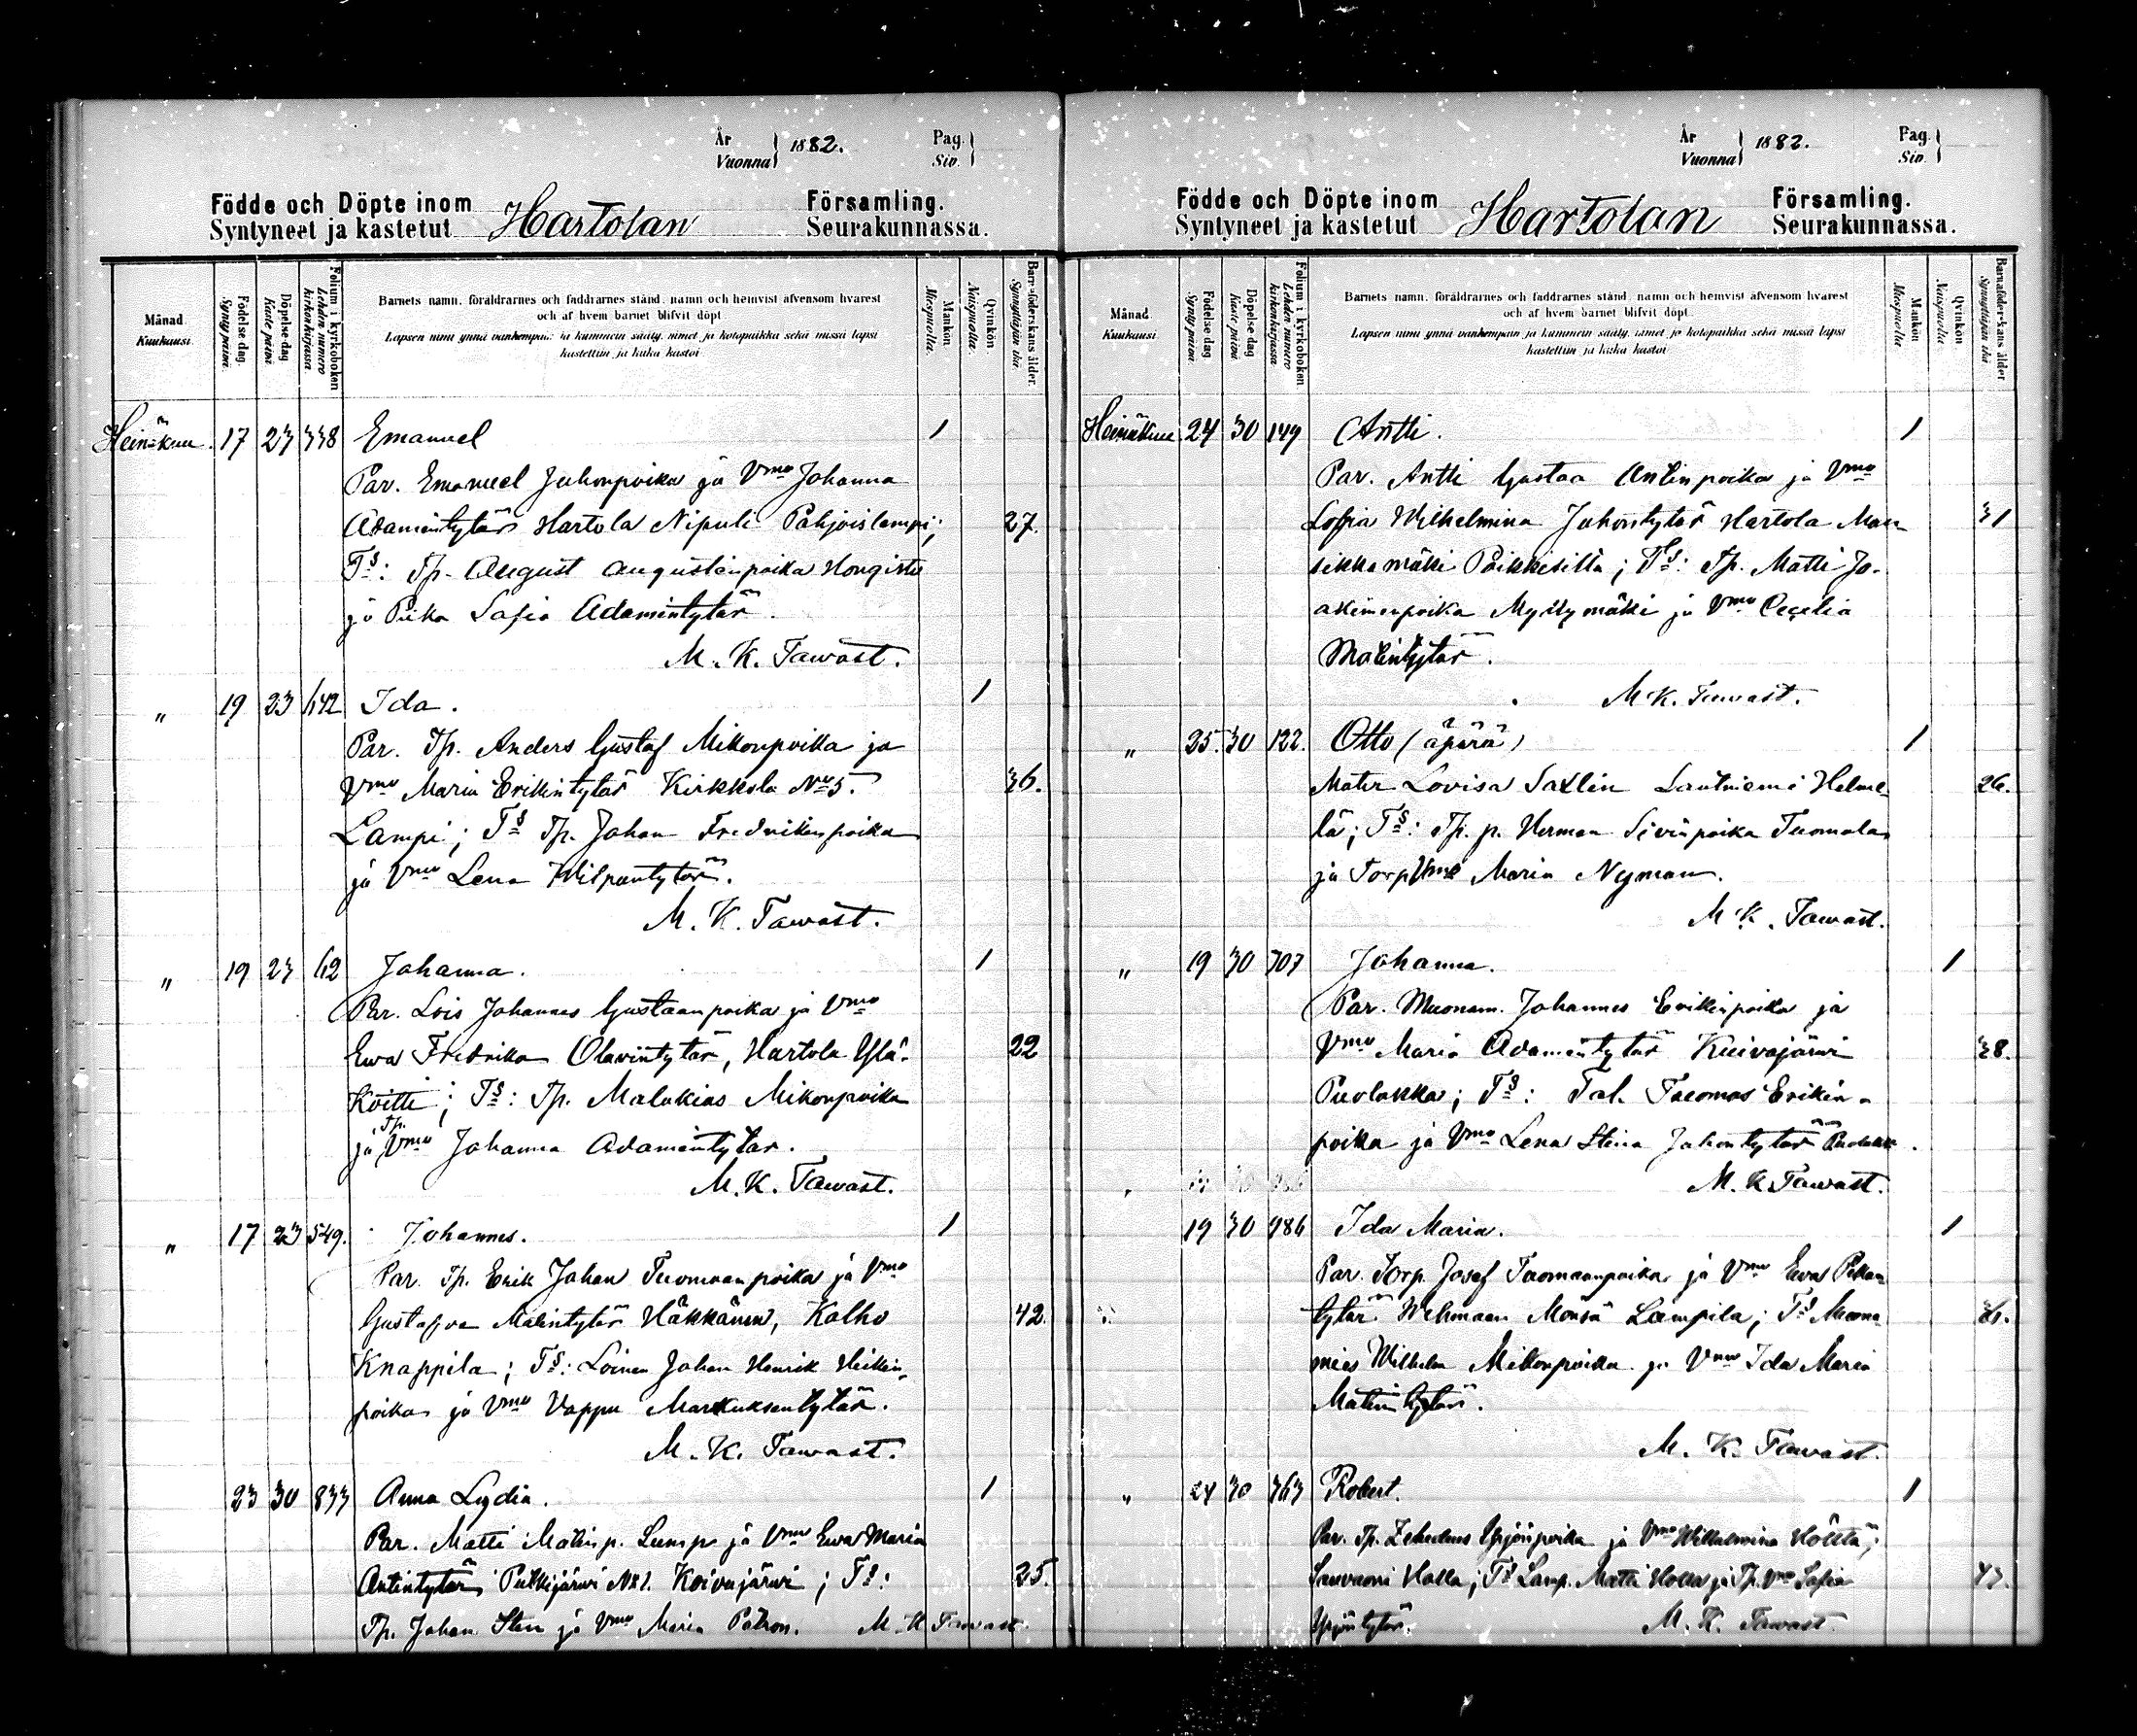 År
Vuonna 1882.
Pag.
Siv.
Födde och Döpte inom
Syntyneet ja kastetut Hartolan
Församling.
Seurakunnassa.
Månad
Kuukausi.
Födelse dag.
Synty päivä.
Döpelse dag
Kaste päivä
Folium i kyrkoboken
Lehden numero kirkonkirjassa
Barnets namn, föräldrarnes och faddrarnes stånd, namn och hemvist äfvensom hvarest
och af hvem barnet blifvit döpt.
Lapsen nimi ynnä vanhempain ja kummein sääty, nimet ja kotopaikka sekä missä lapsi
kastettiin ja kuka kastoi
Mankön
Miespuolta.
Qvinkön.
Naispuolta.
Barnaföderskans ålder.
Synnyttäjän ikä
Heinäkuu. 17 23 338 Emanuel 1
Par. Emanuel Juhonpoika ja Vmo Johanna
Adamintytär Hartola Nipuli Pohjoislampi; 27.
Ts: Tp. August Augustinpoika Hongisto
ja Piika Sofia Adamintytär.
M. K. Tawast.
" 19 23 142 Ida. 1
Par. Tp. Anders Gustaf Mikonpoika ja
Vmo Maria Erikintytär Kirkkola No 5. 36.
Lampi; Ts Tp. Johan Fredrikinpoika
ja Vmo Lena Wilpuntytär.
M. K. Tawast.
" 19 23 62 Johanna. 1
Par. Lois Johannes Gustaanpoika ja Vmo
Ewa Fredrika Olavintytär, Hartola Ylä- 22
Koitti; Ts: Tp. Malakias Mikonpoika
ja Tp. Vmo Johanna Adamintytär.
M. K. Tawast.
" 17 23 549. Johannes. 1
Par. Tp. Erik Johan Tuomaanpoika ja Vmo
Gustafva Matintytär Häkkänen, Kalho 42.
Knappila; Ts: Loinen Johan Henrik Heikin-
poika ja Vmo Vappu Markuksentytär.
M. K. Tawast.
23 30 833 Anna Lydia. 1
Par. Matti Matinp. Lump ja Vmo Ewa Maria
Antintytär Putkijärwi No 1. Koivujärwi; Ts: 25.
Tp. Johan Sten ja Vmo Maria Patron. M. K Tawast.
År
Vuonna 1882.
Pag.
Siv.
Födde och Döpte inom
Syntyneet ja kastetut Hartolan
Församling.
Seurakunnassa.
Månad
Kuukausi.
Födelse dag.
Synty päivä.
Döpelse dag
Kaste päivä
Folium i kyrkoboken
Lehden numero kirkonkirjassa
Barnets namn, föräldrarnes och faddrarnes stånd, namn och hemvist äfvensom hvarest
och af hvem barnet blifvit döpt.
Lapsen nimi ynnä vanhempain ja kummein sääty, nimet ja kotopaikka sekä missä lapsi
kastettiin ja kuka kastoi
Mankön
Miespuolta
Qvinkön.
Naispuolta
Barnaföderskans ålder
Synnyttäjän ikä
Heinäkuu 24 30 149 Antti. 1
Par. Antti Gustaa Antinpoika ja Vmo
Sofia Wilhelmina Juhontytär Hartola Man 31
sikkamäki Poikkisilta; Ts: Tp. Matti Jo-
akiminpoika Myllymäki ja Vmo Cecelia
Matintytär.
M. K. Tawast.
" 25. 30 122. Otto (äpärä) 1
Mater Lovisa Saxlin Lautniemi Helme- 26.
lä; Ts: Tp. p. Herman Sivinpoika Tuomala
ja Torp Vmo Maria Nyman.
M. K. Tawast.
" 19 30 707 Johanna. 1
Par. Muonam. Johannes Erikinpoika ja
Vmo Maria Adamintytär Kuivajärwi 38.
Puolakka; Ts: Tal. Tuomas Erikin-
poika ja Vmo Lena Stina Juhontytär Puolakka.
M. K Tawast.
19 30 986 Ida Maria. 1
Par. Torp. Josef Tuomaanpoika ja Vmo Ewa Pekan
tytär Wehmaan Monsa Lampila; Ts Muona-
mies Wilhelm Mikonpoika ja Vmo Ida Maria
Matintytär.
M. K. Tawast.
" 24 30 363 Robert. 1
Par. Tp. Zebedeus Yrjönpoika ja Vmo Wilhelmina Höltta;
Halla; Ts Lamp. Matti Holla ja Tp. Vmo Sofia 43.
Yrjöntytär. M. K. Tawast.